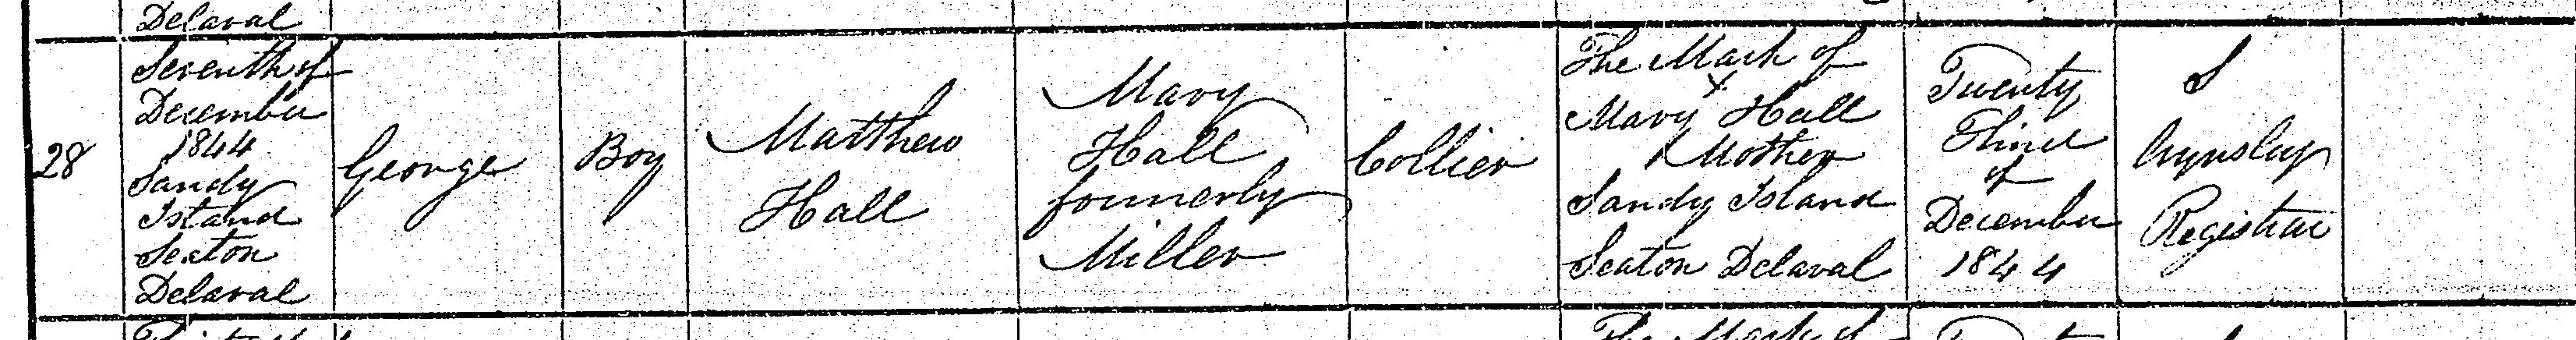 Delaval
28
Seventh of
December
1844
Sandy
Island
Seaton
Delaval
George
Boy
Matthew
Hall
Mary
Hall
formerly
Miller
Collier
The Mark of
X
Mary Hall
Mother
Sandy Island
Seaton Delaval
Twenty
Third
of
December
1844
Registrar
The Mark of